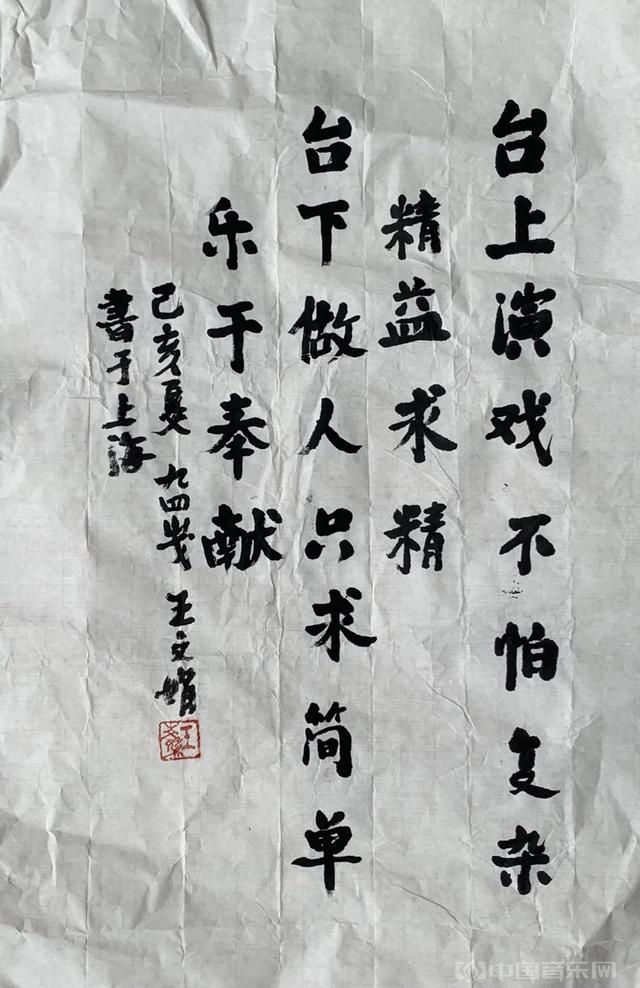 台上演戏不怕复杂
精益求精
台下做人只求简单
乐于奉献
己亥夏 九四岁 王文娟
書于上海
中国音乐网